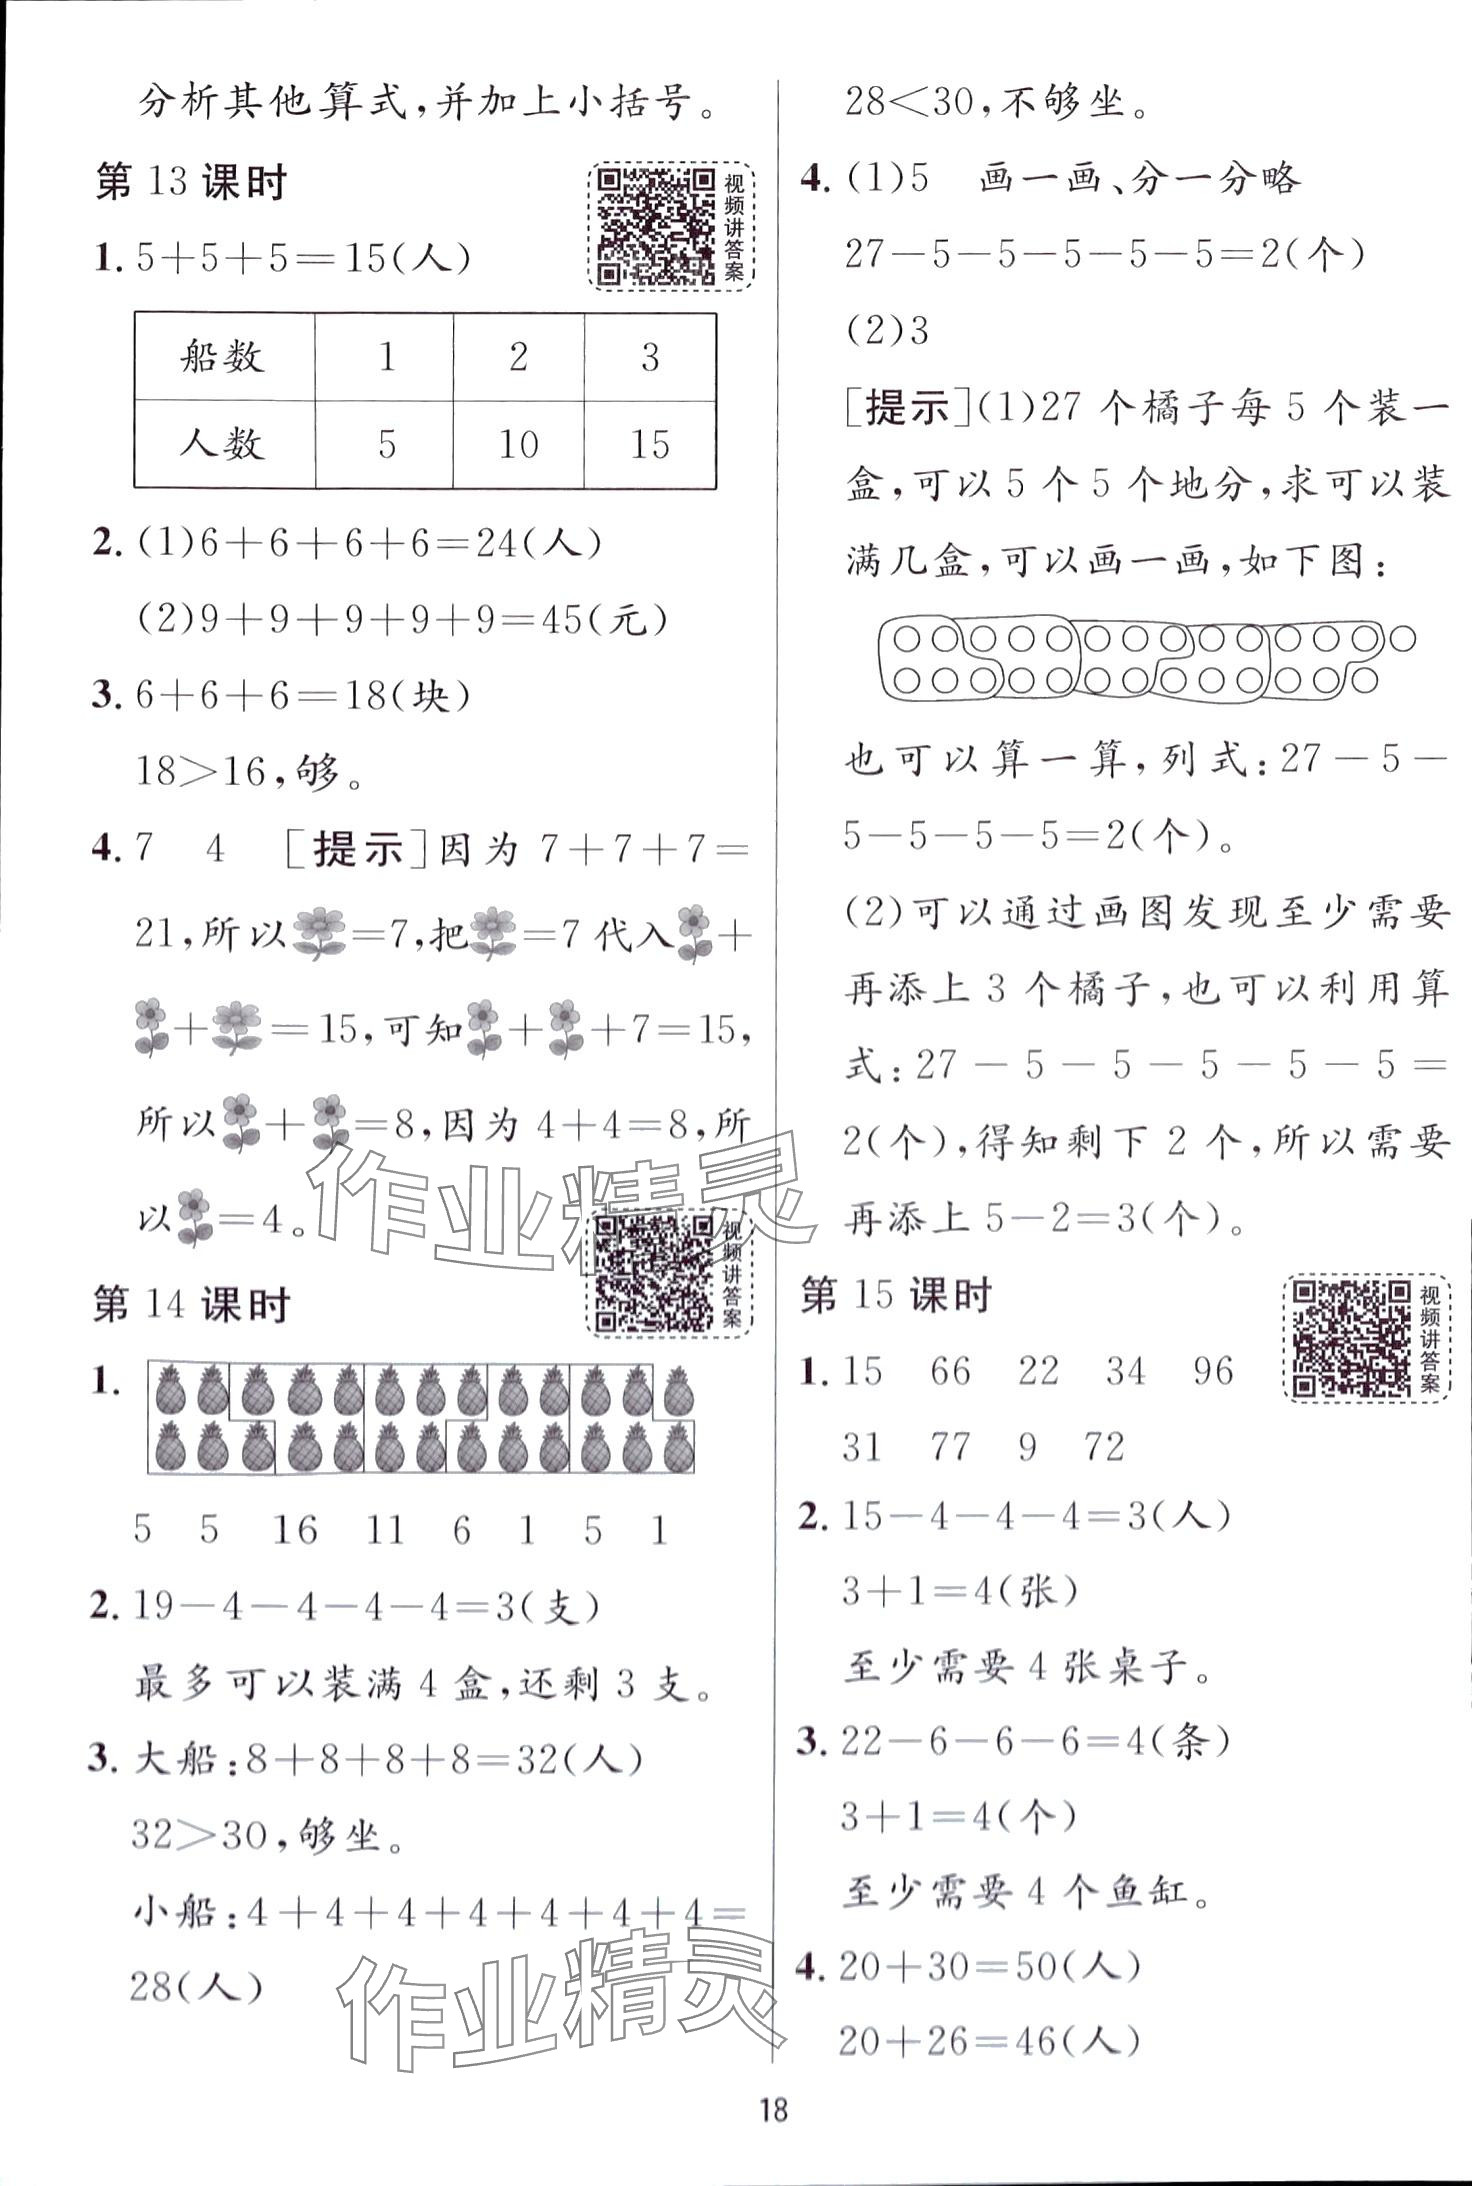 分析其他算式,并加上小括号。
第 13 课时
视频讲答案
1. 5+5+5=15(人)
船数 1 2 3
人数 5 10 15
2. (1)6+6+6+6=24(人)
(2)9+9+9+9+9=45(元)
3. 6+6+6=18(块)
18>16,够。
4. 7 4 [提示]因为 7+7+7=
21,所以=7,把=7 代入+
+=15,可知++7=15,
所以+=8,因为 4+4=8,所
以=4。
第 14 课时
视频讲答案
1.
5 5 16 11 6 1 5 1
2. 19-4-4-4-4=3(支)
最多可以装满 4 盒,还剩 3 支。
3. 大船:8+8+8+8=32(人)
32>30,够坐。
小船:4+4+4+4+4+4+4=
28(人)
28<30,不够坐。
4. (1)5 画一画、分一分略
27-5-5-5-5-5=2(个)
(2)3
[提示](1)27 个橘子每 5 个装一
盒,可以 5 个 5 个地分,求可以装
满几盒,可以画一画,如下图:
也可以算一算,列式:27-5-
5-5-5-5=2(个)。
(2)可以通过画图发现至少需要
再添上 3 个橘子,也可以利用算
式:27-5-5-5-5-5=
2(个),得知剩下 2 个,所以需要
再添上 5-2=3(个)。
第 15 课时
视频讲答案
1. 15 66 22 34 96
31 77 9 72
2. 15-4-4-4=3(人)
3+1=4(张)
至少需要 4 张桌子。
3. 22-6-6-6=4(条)
3+1=4(个)
至少需要 4 个鱼缸。
4. 20+30=50(人)
20+26=46(人)
作业精灵
作业精灵
18